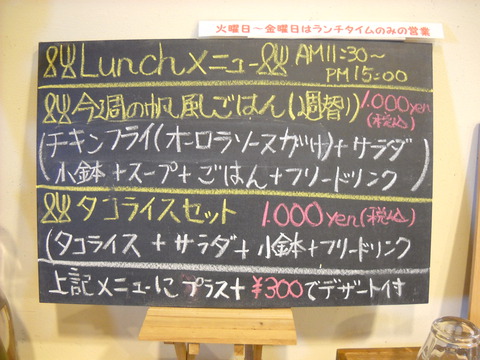 火曜日～金曜日はランチタイムのみの営業
Lunchメニュー AM11:30～
PM15:00
今週の帆風ごはん(週替り) 1.000yen
(税込)
(チキンフライ(オーロラソースがけ)+サラダ
小鉢+スープ+ごはん+フリードリンク)
タコライスセット 1.000yen(税込)
(タコライス+サラダ+小鉢+フリードリンク
上記メニューにプラス+¥300でデザート付